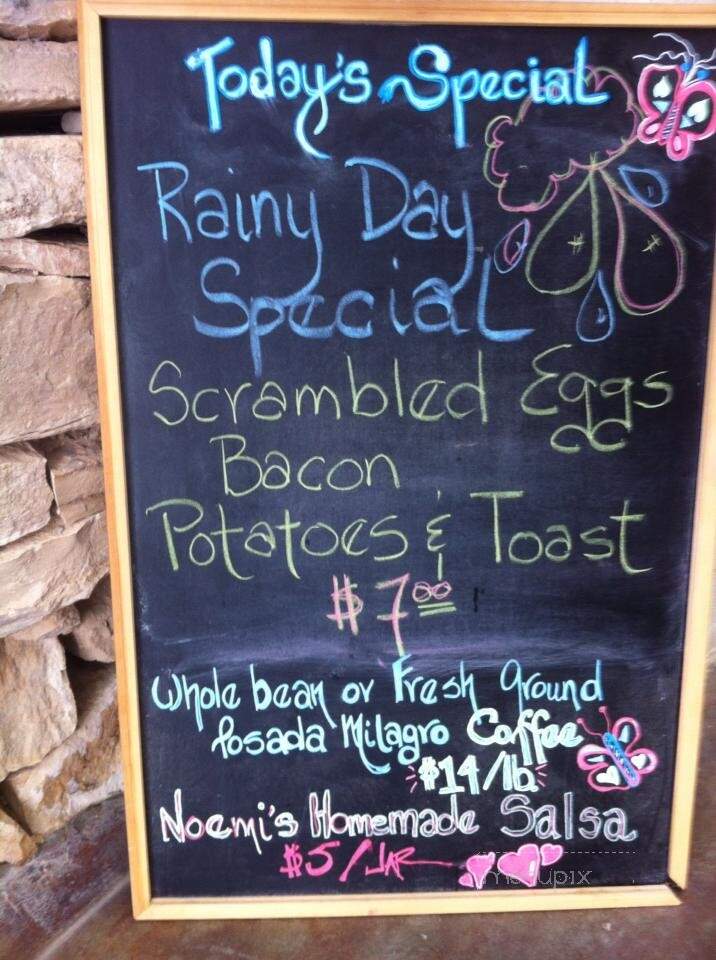 Today's Special
Rainy Day
Special
Scrambled Eggs
Bacon
Potatoes & Toast
$7.00
Whole bean or Fresh Ground
Posada Milagro Coffee
$14/lb
Noemi's Homemade Salsa
$5/JAR
menupix